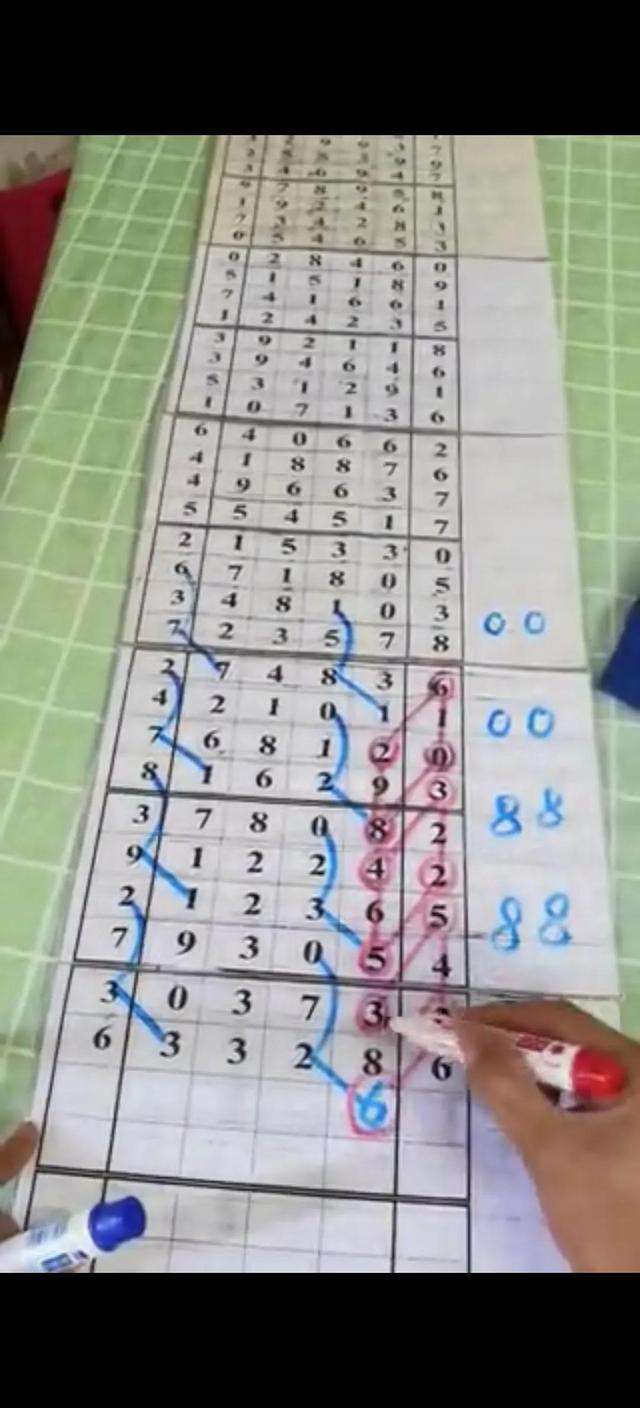 9 7 8 9 5 8
1 9 2 4 6 1
7 3 4 2 8 3
0 5 4 6 5 3
0 2 8 4 6 0
5 1 5 1 8 9
7 4 1 6 6 1
1 2 4 2 3 5
3 9 2 1 1 8
3 9 4 6 4 6
5 3 1 2 9 1
1 0 7 1 3 6
6 4 0 6 6 2
4 1 8 8 7 6
4 9 6 6 3 7
5 5 4 5 1 7
2 1 5 3 3 0
6 7 1 8 0 5
3 4 8 1 0 3
7 2 3 5 7 8
00
2 7 4 8 3 6
4 2 1 0 1 1
00
7 6 8 1 2 0
8 1 6 2 9 3
88
3 7 8 0 8 2
9 1 2 2 4 2
2 1 2 3 6 5
88
7 9 3 0 5 4
3 0 3 7 3
6 3 3 2 8 6
6